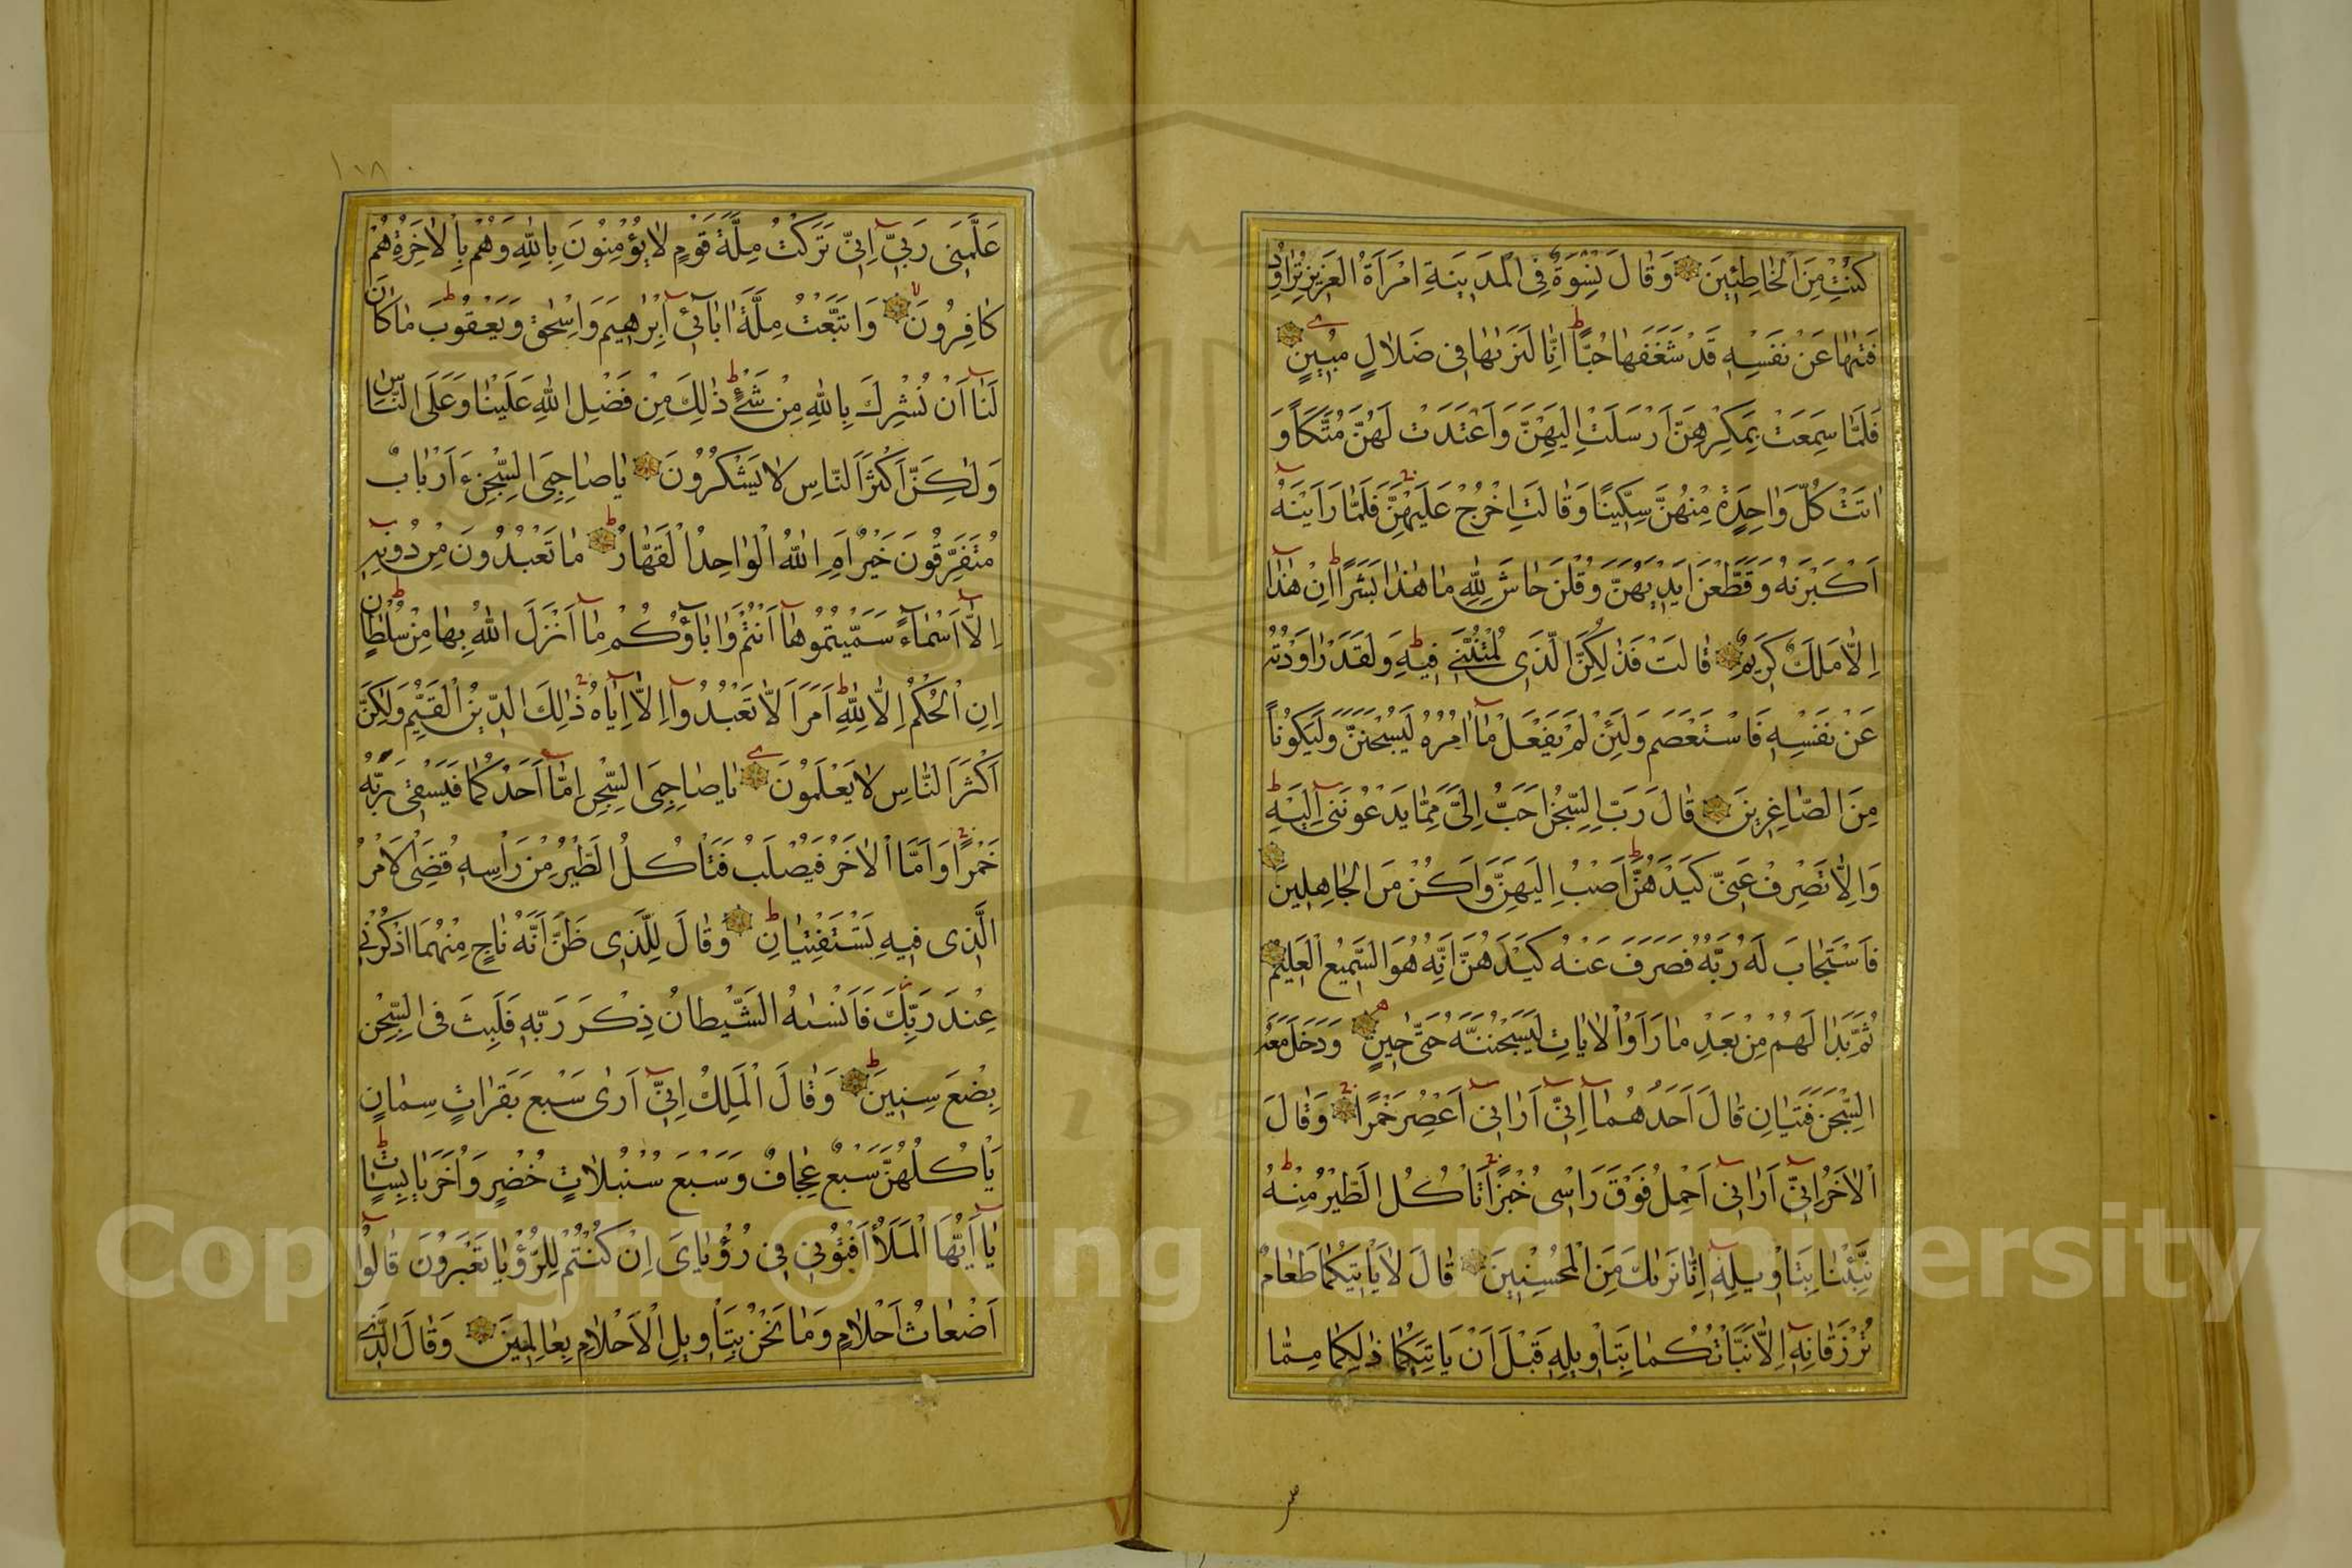 كُنْتِ مِنَ الْخَاطِئِينَ وَقَالَ نِسْوَةٌ فِى الْمَدِينَةِ امْرَاَةُ الْعَزِيزِ تُرَاوِدُ
فَتٰيهَا عَنْ نَفْسِهِ قَدْ شَغَفَهَا حُبًّا اِنَّا لَنَرٰيهَا فِى ضَلَالٍ مُبِينٍ
فَلَمَّا سَمِعَتْ بِمَكْرِهِنَّ اَرْسَلَتْ اِلَيْهِنَّ وَاَعْتَدَتْ لَهُنَّ مُتَّكَاً وَ
اٰتَتْ كُلَّ وَاحِدَةٍ مِنْهُنَّ سِكِّينًا وَقَالَتِ اخْرُجْ عَلَيْهِنَّ فَلَمَّا رَاَيْنَهُ
اَكْبَرْنَهُ وَقَطَّعْنَ اَيْدِيَهُنَّ وَقُلْنَ حَاشَ لِلّٰهِ مَا هٰذَا بَشَرًا اِنْ هٰذَا
اِلَّا مَلَكٌ كَرِيمٌ قَالَتْ فَذٰلِكُنَّ الَّذِى لُمْتُنَّنِى فِيهِ وَلَقَدْ رَاوَدْتُهُ
عَنْ نَفْسِهِ فَاسْتَعْصَمَ وَلَئِنْ لَمْ يَفْعَلْ مَا اٰمُرُهُ لَيُسْجَنَنَّ وَلَيَكُونًا
مِنَ الصَّاغِرِينَ قَالَ رَبِّ السِّجْنُ اَحَبُّ اِلَىَّ مِمَّا يَدْعُونَنِى اِلَيْهِ
وَاِلَّا تَصْرِفْ عَنِّى كَيْدَهُنَّ اَصْبُ اِلَيْهِنَّ وَاَكُنْ مِنَ الْجَاهِلِينَ
فَاسْتَجَابَ لَهُ رَبُّهُ فَصَرَفَ عَنْهُ كَيْدَهُنَّ اِنَّهُ هُوَ السَّمِيعُ الْعَلِيمُ
ثُمَّ بَدَا لَهُمْ مِنْ بَعْدِ مَا رَاَوُا الْاٰيَاتِ لَيَسْجُنُنَّهُ حَتّٰى حِينٍ وَدَخَلَ مَعَهُ
السِّجْنَ فَتَيَانِ قَالَ اَحَدُهُمَا اِنِّى اَرَانِى اَعْصِرُ خَمْرًا وَقَالَ
الْاٰخَرُ اِنِّى اَرَانِى اَحْمِلُ فَوْقَ رَاْسِى خُبْزًا تَاْكُلُ الطَّيْرُ مِنْهُ
نَبِّئْنَا بِتَاْوِيلِهِ اِنَّا نَرٰيكَ مِنَ الْمُحْسِنِينَ قَالَ لَا يَاْتِيكُمَا طَعَامٌ
تُرْزَقَانِهِ اِلَّا نَبَّاْتُكُمَا بِتَاْوِيلِهِ قَبْلَ اَنْ يَاْتِيَكُمَا ذٰلِكُمَا مِمَّا
١٠٨
عَلَّمَنِى رَبِّى اِنِّى تَرَكْتُ مِلَّةَ قَوْمٍ لَا يُؤْمِنُونَ بِاللّٰهِ وَهُمْ بِالْاٰخِرَةِ هُمْ
كَافِرُونَ وَاتَّبَعْتُ مِلَّةَ اٰبَائِى اِبْرٰهِيمَ وَاِسْحٰقَ وَيَعْقُوبَ مَا كَانَ
لَنَا اَنْ نُشْرِكَ بِاللّٰهِ مِنْ شَىْءٍ ذٰلِكَ مِنْ فَضْلِ اللّٰهِ عَلَيْنَا وَعَلَى النَّاسِ
وَلٰكِنَّ اَكْثَرَ النَّاسِ لَا يَشْكُرُونَ يَا صَاحِبَىِ السِّجْنِ ءَاَرْبَابٌ
مُتَفَرِّقُونَ خَيْرٌ اَمِ اللّٰهُ الْوَاحِدُ الْقَهَّارُ مَا تَعْبُدُونَ مِنْ دُونِهِ
اِلَّا اَسْمَاءً سَمَّيْتُمُوهَا اَنْتُمْ وَاٰبَاؤُكُمْ مَا اَنْزَلَ اللّٰهُ بِهَا مِنْ سُلْطَانٍ
اِنِ الْحُكْمُ اِلَّا لِلّٰهِ اَمَرَ اَلَّا تَعْبُدُوا اِلَّا اِيَّاهُ ذٰلِكَ الدِّينُ الْقَيِّمُ وَلٰكِنَّ
اَكْثَرَ النَّاسِ لَا يَعْلَمُونَ يَا صَاحِبَىِ السِّجْنِ اَمَّا اَحَدُكُمَا فَيَسْقِى رَبَّهُ
خَمْرًا وَاَمَّا الْاٰخَرُ فَيُصْلَبُ فَتَاْكُلُ الطَّيْرُ مِنْ رَاْسِهِ قُضِىَ الْاَمْرُ
الَّذِى فِيهِ تَسْتَفْتِيَانِ وَقَالَ لِلَّذِى ظَنَّ اَنَّهُ نَاجٍ مِنْهُمَا اذْكُرْنِى
عِنْدَ رَبِّكَ فَاَنْسٰيهُ الشَّيْطَانُ ذِكْرَ رَبِّهِ فَلَبِثَ فِى السِّجْنِ
بِضْعَ سِنِينَ وَقَالَ الْمَلِكُ اِنِّى اَرٰى سَبْعَ بَقَرَاتٍ سِمَانٍ
يَاْكُلُهُنَّ سَبْعٌ عِجَافٌ وَسَبْعَ سُنْبُلَاتٍ خُضْرٍ وَاُخَرَ يَابِسَاتٍ
يَا اَيُّهَا الْمَلَاُ اَفْتُونِى فِى رُؤْيَاىَ اِنْ كُنْتُمْ لِلرُّؤْيَا تَعْبُرُونَ قَالُوا
اَضْغَاثُ اَحْلَامٍ وَمَا نَحْنُ بِتَاْوِيلِ الْاَحْلَامِ بِعَالِمِينَ وَقَالَ الَّذِى
Copyright © King Saud University